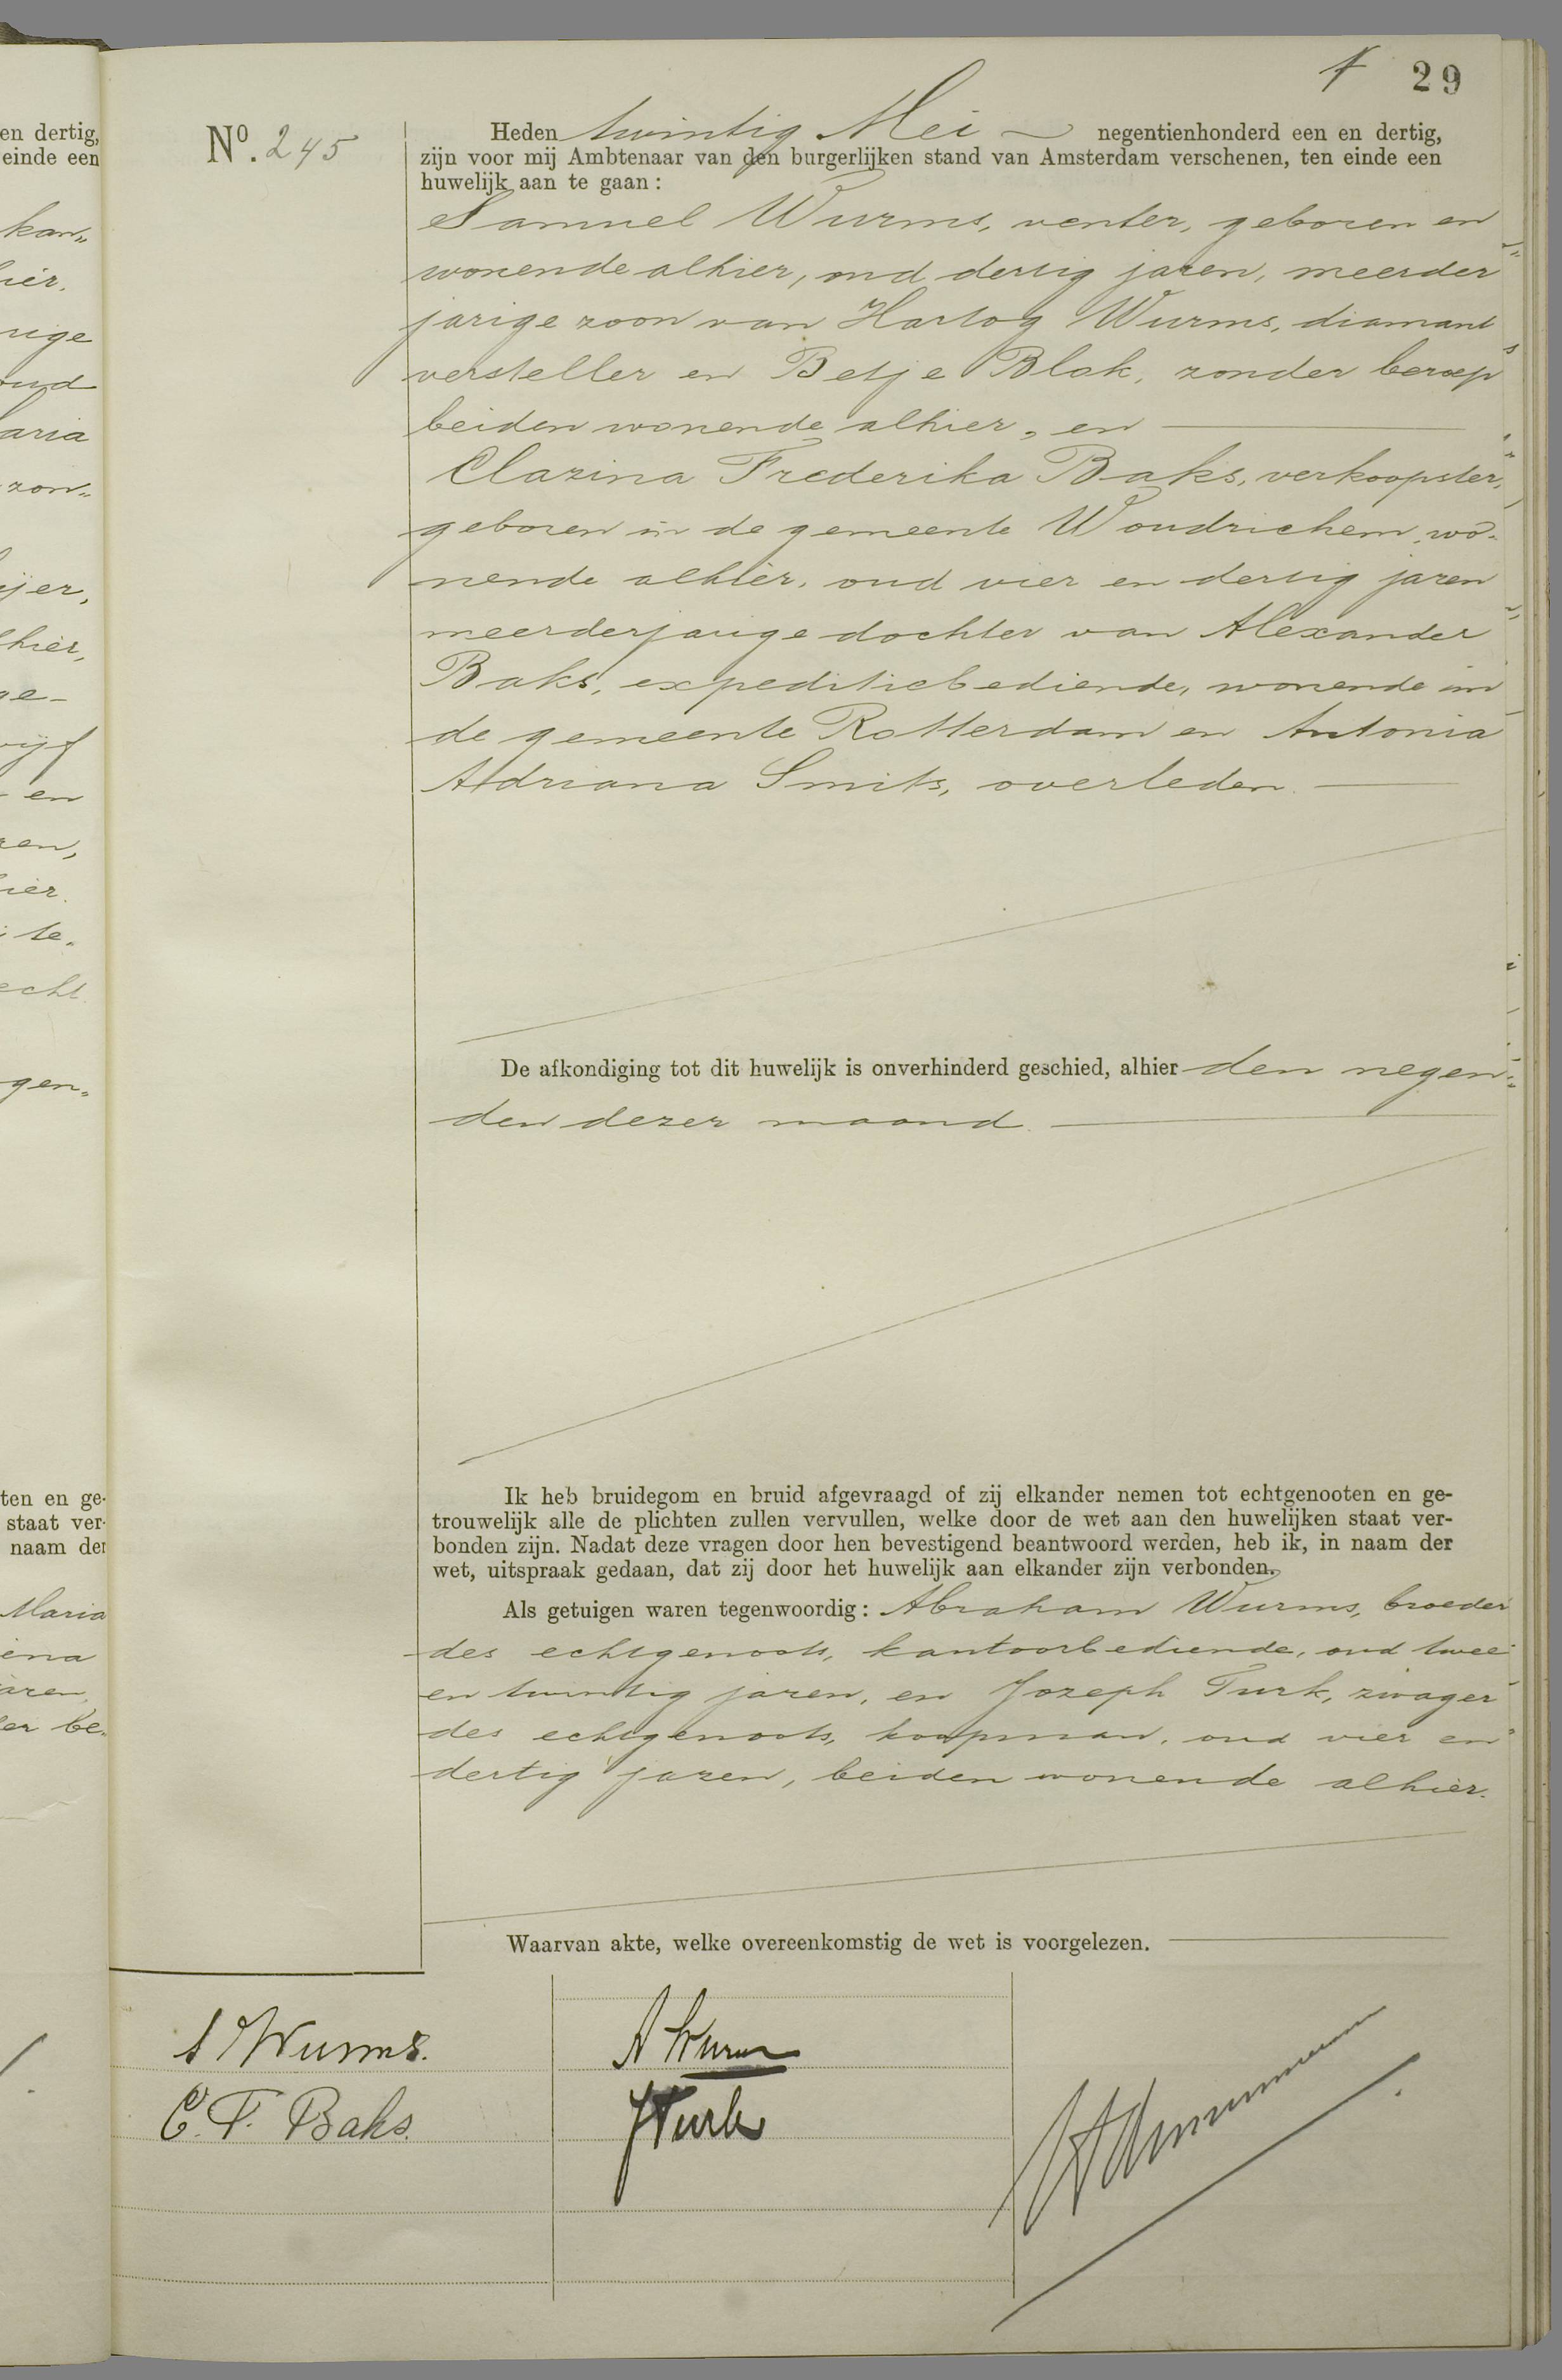 en dertig,
einde een
kan„
hier.
rige
oud
aria
zon„
ijer,
lhier,
ge-
vijf
en
ren,
hier.
te„
echt.
gen„
ten en ge-
staat ver-
naam der
Maria
ena
aren,
er be„
29
Nº. 245
Heden twintig Mei negentienhonderd een en dertig,
zijn voor mij Ambtenaar van den burgerlijken stand van Amsterdam verschenen, ten einde een
huwelijk aan te gaan:
Samuel Wurms, venter, geboren en
wonende alhier, oud dertig jaren, meerder
jarige zoon van Hartog Wurms, diamant
versteller en Betje Blok, zonder beroep
beiden wonende alhier, en
Clazina Frederika Baks, verkoopster,
geboren in de gemeente Woudrichem, wo-
nende alhier, oud vier en dertig jaren
meerderjarige dochter van Alexander
Baks, expeditiebediende, wonende in
de gemeente Rotterdam en Antonia
Adriana Smits, overleden.
De afkondiging tot dit huwelijk is onverhinderd geschied, alhier den negen„
den dezer maand.
Ik heb bruidegom en bruid afgevraagd of zij elkander nemen tot echtgenooten en ge-
trouwelijk alle de plichten zullen vervullen, welke door de wet aan den huwelijken staat ver-
bonden zijn. Nadat deze vragen door hen bevestigend beantwoord werden, heb ik, in naam der
wet, uitspraak gedaan, dat zij door het huwelijk aan elkander zijn verbonden.
Als getuigen waren tegenwoordig: Abraham Wurms, broeder
des echtgenoots, kantoorbediende, oud twee
en twintig jaren, en Jozeph Turk, zwager
des echtgenoots, koopman, oud vier en
dertig jaren, beiden wonende alhier.
Waarvan akte, welke overeenkomstig de wet is voorgelezen.
S Wurms.
A Wurms
C. F. Baks.
J Turk